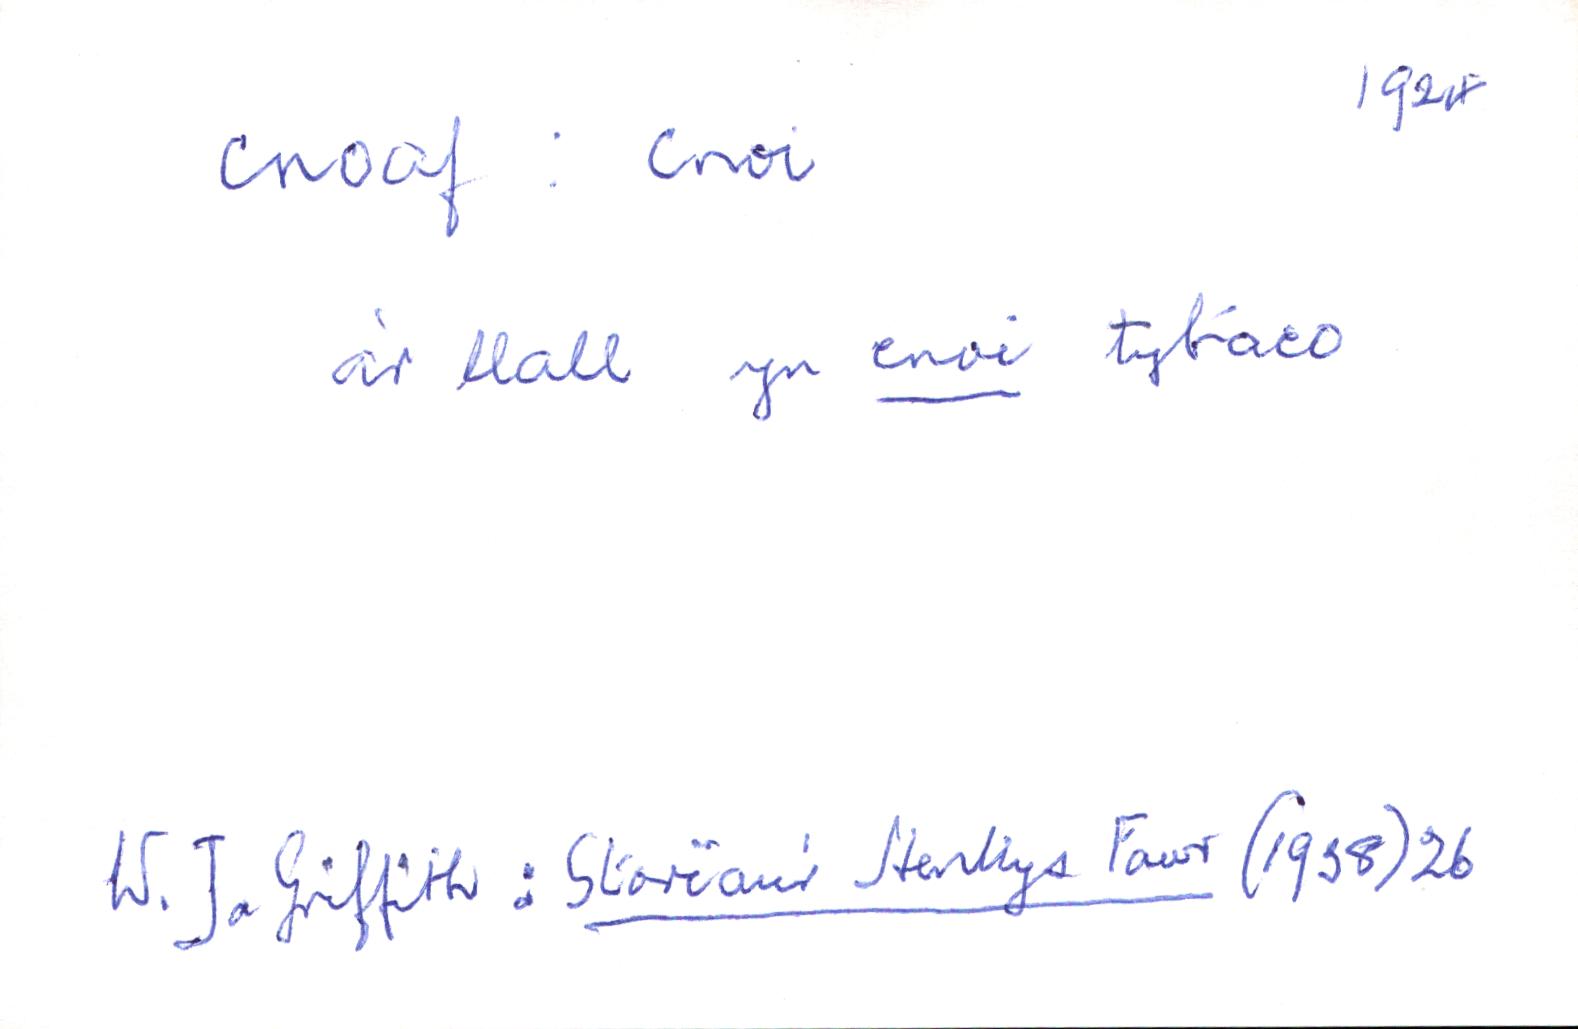 1928
cnoaf : cnoi
a'r llall yn cnoi tybaco
W. J. Griffith : Storïau'r Henllys Fawr (1938) 26